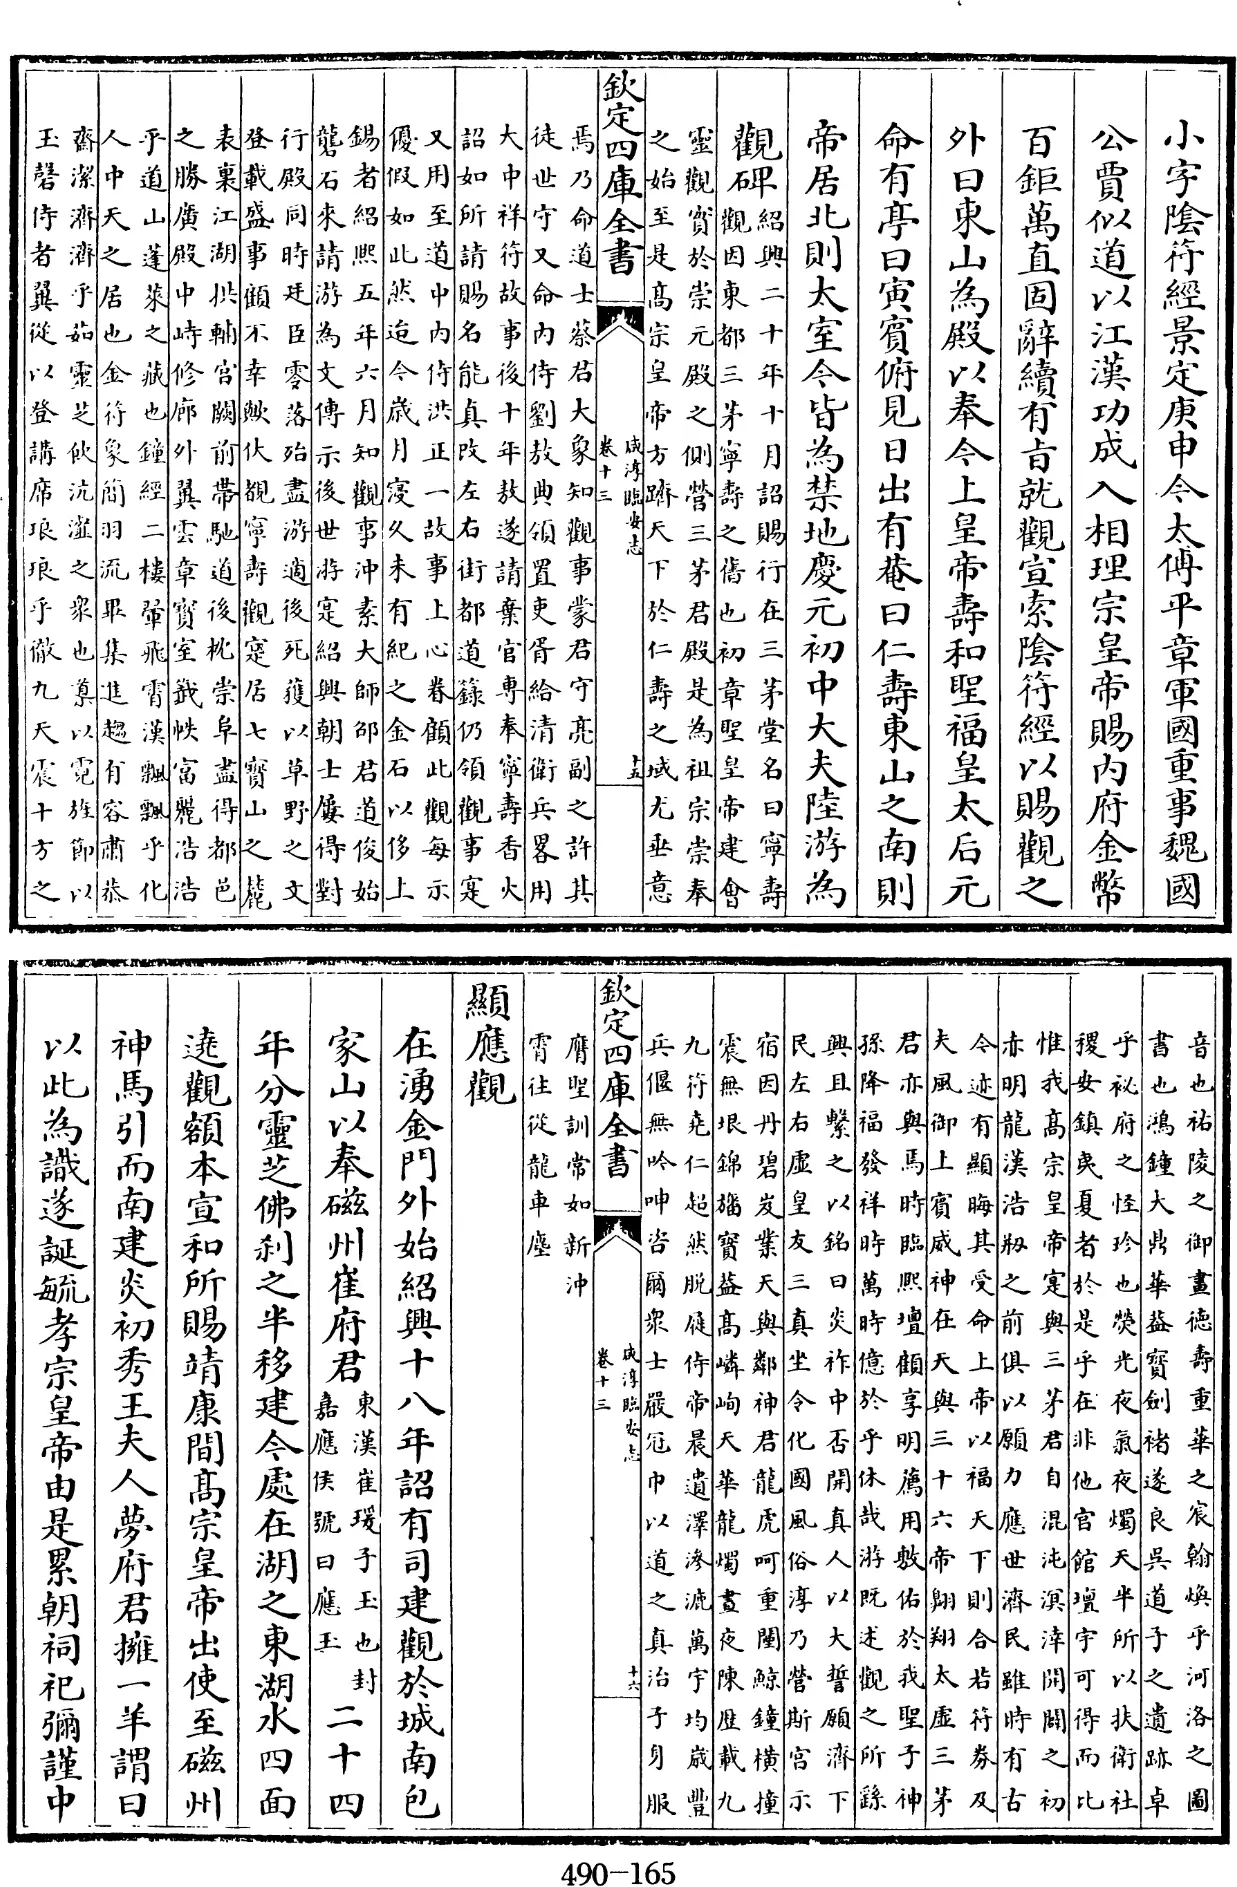 小字陰符經景定庚申今太傅平章軍國重事魏國
公賈似道以江漢功成入相理宗皇帝賜内府金幣
百鉅萬直固辭續有旨就觀宣索陰符經以賜觀之
外曰東山為殿以奉今上皇帝壽和聖福皇太后元
命有亭曰寅賓俯見日出有菴曰仁壽東山之南則
帝居北則太室今皆為禁地慶元初中大夫陸游為
觀碑紹興二十年十月詔賜行在三茅堂名曰寧壽
觀因東都三茅寧壽之舊也初章聖皇帝建㑹
靈觀實於崇元殿之側營三茅君殿是為祖宗崇奉
之始至是髙宗皇帝方躋天下於仁壽之域尤垂意
欽定四庫全書
咸淳臨安志
卷十三
十五
焉乃命道士蔡君大象知觀事蒙君守亮副之許其
徒世守又命内侍劉敖典領置吏胥給清衛兵畧用
大中祥符故事後十年敖遂請棄官専奉寧壽香火
詔如所請賜名能真改左右街都道籙仍領觀事寔
又用至道中内侍洪正一故事上心眷顧此觀每示
優假如此然迨今歲月寖久未有紀之金石以侈上
錫者紹熙五年六月知觀事沖素大師邵君道俊始
礱石來請游為文傳示後世游寔紹興朝士屢得對
行殿同時廷臣零落殆盡游適後死獲以草野之文
登載盛事顧不幸歟伏覩寧壽觀寔居七寳山之麓
表裏江湖拱輔宫闕前帶馳道後枕崇阜盡得都邑
之勝廣殿中峙修廊外翼雲章寳室籤帙富麗浩浩
乎道山蓬萊之藏也鐘經二樓翬飛霄漢飄飄乎化
人中天之居也金符象簡羽流畢集進趨有容肅恭
齋潔濟濟乎茹靈芝飲沆瀣之衆也以霓旌節以
玉磬侍者翼從以登講席琅琅乎徹九天震十方之
音也祐陵之御畫徳壽重華之宸翰焕乎河洛之圖
書也鴻鐘大鼎華葢寳劍褚遂良吳道子之遺跡卓
乎祕府之怪珍也熒光夜氣夜燭天半所以扶衛社
稷安鎮夷夏者於是乎在非他官館壇宇可得而比
惟我髙宗皇帝寔與三茅君自混沌溟涬開闢之初
亦明龍漢浩刼之前俱以願力應世濟民雖時有古
今迹有顯晦其受命上帝以福天下則合若符券及
夫風御上賓威神在天與三十六帝翺翔太虚三茅
君亦與焉時臨熙壇顧享明薦用敷佑於我聖子神
孫降福發祥時萬時億於乎休哉游既述觀之所繇
興且繫之以銘曰炎祚中否開真人以大誓願濟下
民左右虛皇友三真坐令化國風俗淳乃營斯宫示
宿因丹碧岌業天與鄰神君龍虎呵重闉鯨鐘橫撞
震無垠錦旛寳葢髙嶙峋天華龍燭晝夜陳歴載九
九符堯仁超然脱屣侍帝晨遺澤滲漉萬宇均歲豐
兵偃無吟呻咨爾衆士嚴冠巾以道之真治予身服
欽定四庫全書
咸淳臨安志
卷十三
十六
膺聖訓常如新沖
霄往從龍車塵
顯應觀
在湧金門外始紹興十八年詔有司建觀於城南包
家山以奉磁州崔府君東漢崔瑗子玉也封
嘉應侯號曰應王二十四
年分靈芝佛刹之半移建今處在湖之東湖水四面
遶觀額本宣和所賜靖康間髙宗皇帝出使至磁州
神馬引而南建炎初秀王夫人夢府君擁一羊謂曰
以此為識遂誕毓孝宗皇帝由是累朝祠祀彌謹中
490-165